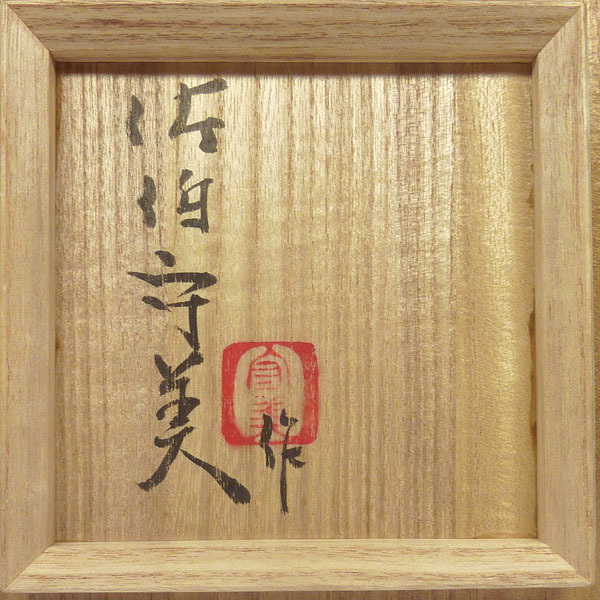 佐伯守美
作